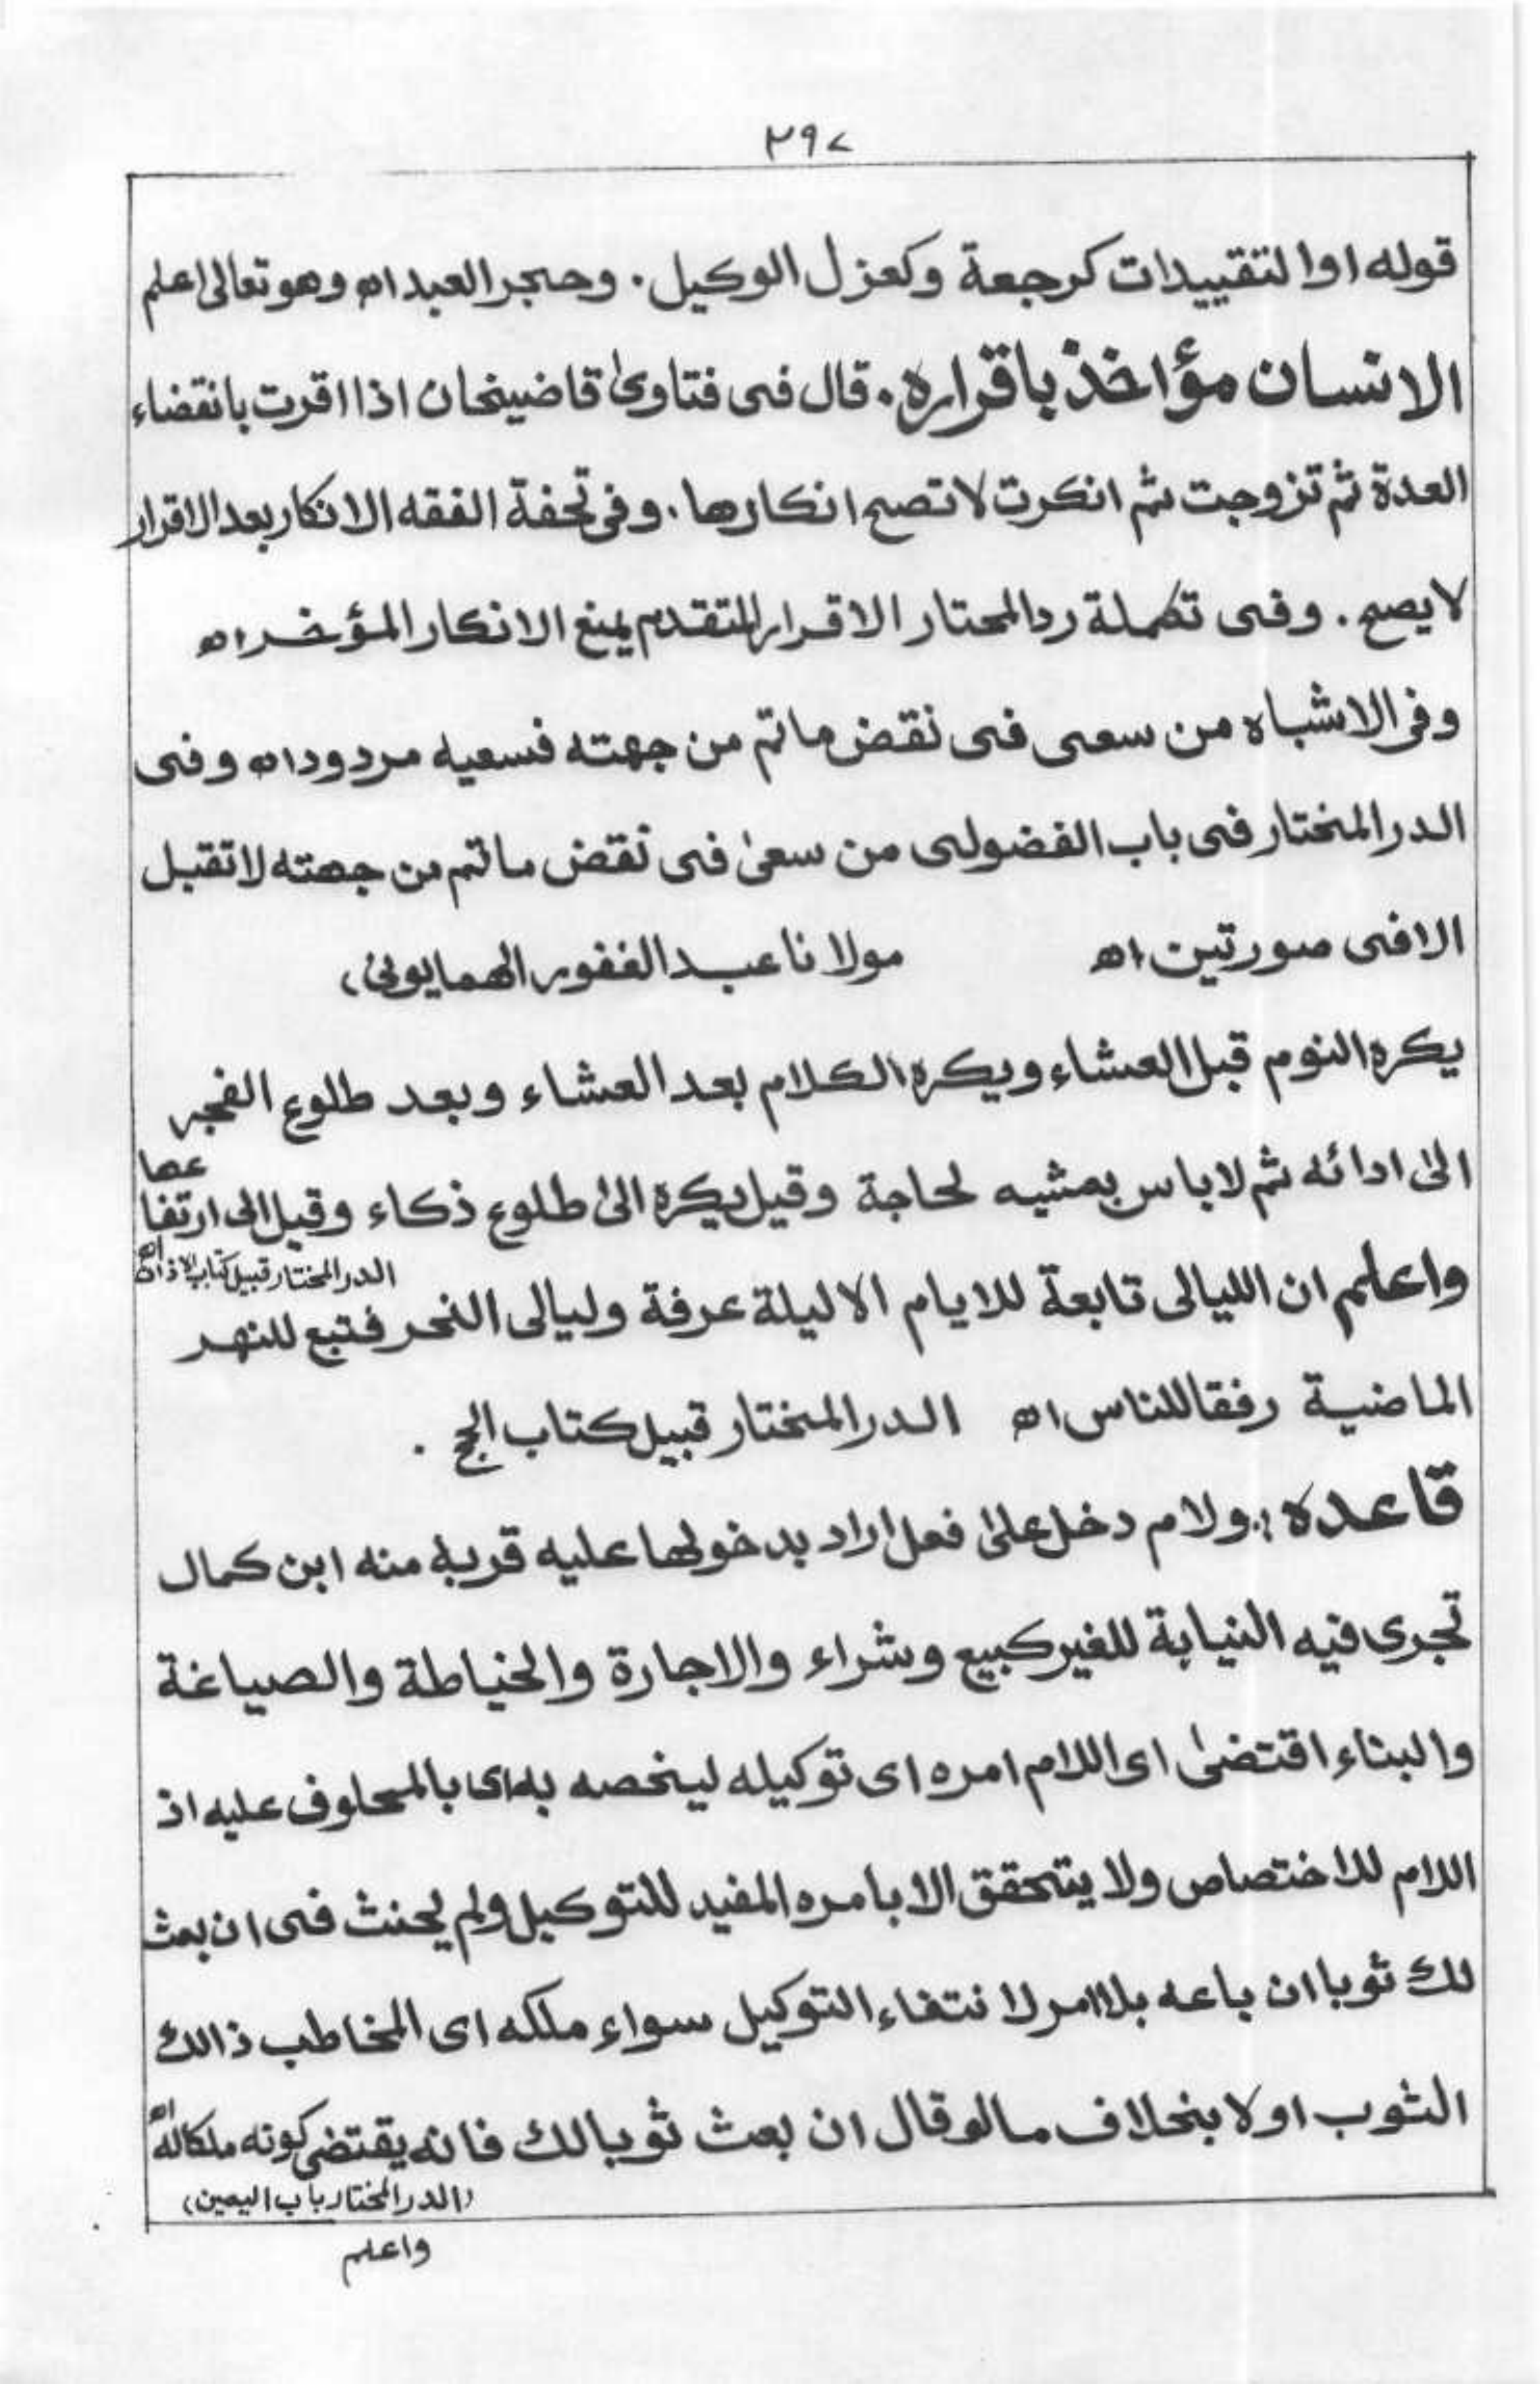 ٢٩٧
قوله او التقييدات كرجعة وكعزل الوكيل . وحجر العبد اه وهو تعالى اعلم
الانسان مؤاخذ باقراره . قال فى فتاوىٰ قاضيخان اذا اقرت بانقضاء
العدة ثم تزوجت ثم انكرت لا تصح انكارها . وفى تحفة الفقه الانكار بعد الاقرار
لا يصح . وفى تكملة رد المحتار الاقرار المتقدم يمنع الانكار المؤخر اه
وفى الاشباه من سعى فى نقض ما تم من جهته فسعيه مردود اه وفى
الدر المختار فى باب الفضولى من سعىٰ فى نقض ما تم من جهته لا تقبل
الا فى صورتين اه مولانا عبد الغفور الهمايونى)
يكره النوم قبل العشاء ويكره الكلام بعد العشاء وبعد طلوع الفجر
الىٰ ادائه ثم لا باس بمشيه لحاجة وقيل يكره الىٰ طلوع ذكاء وقيل الى ارتفا
عها
اه الدر المختار قبيل كتاب الاذان
واعلم ان الليالى تابعة للايام الا ليلة عرفة وليالى النحر فتبع للنهر
الماضية رفقا للناس اه الدر المختار قبيل كتاب الحج .
قاعده :. ولام دخل علىٰ فعل اراد بدخولها عليه قربه منه ابن كمال
تجرى فيه النيابة للغير كبيع وشراء والاجارة والخياطة والصياغة
والبناء اقتضىٰ اى اللام امره اى توكيله ليخصه به اى بالمحلوف عليه اذ
اللام للاختصاص ولا يتحقق الا بامره المفيد للتوكيل ولم يحنث فى ان بعث
لك ثوبا ان باعه بلا امر لا نتفاء التوكيل سواء ملكه اى المخاطب ذالك
الثوب اولا بخلاف ما لو قال ان بعث ثوبا لك فانه يقتضى كونه ملكا له اه
(الدر المختار باب اليمين)
واعلم